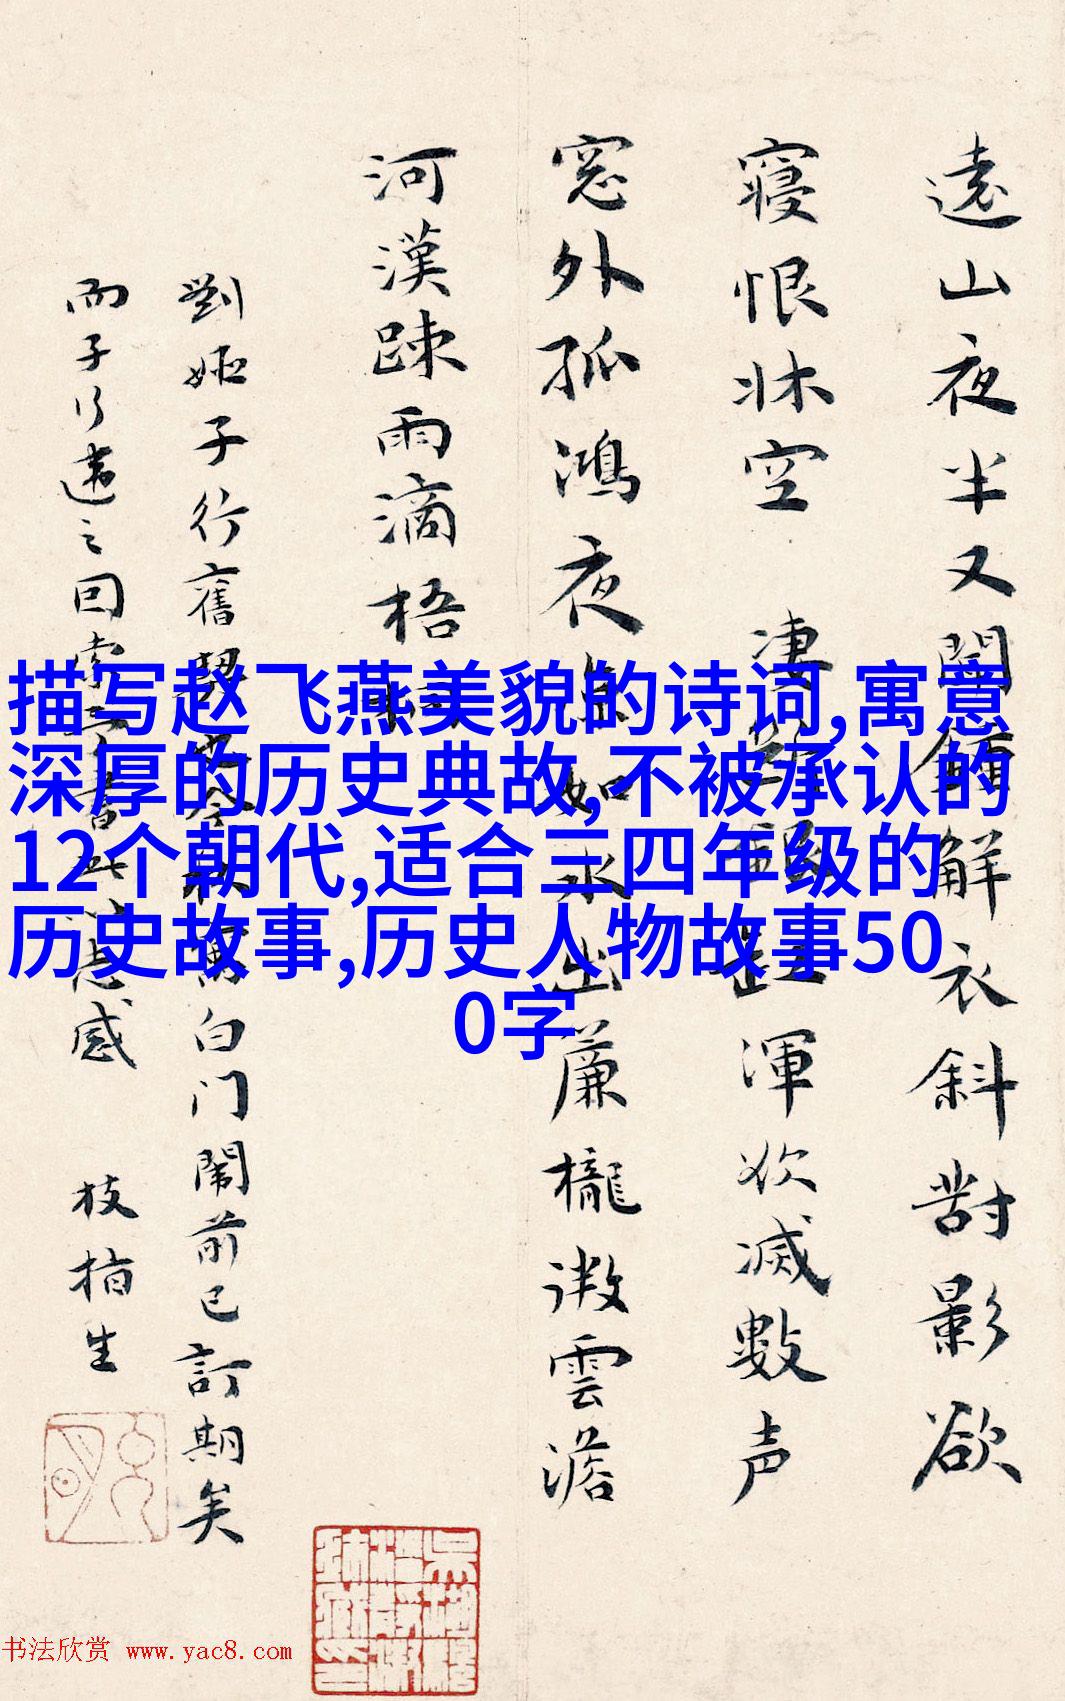 遠山夜半又聞解衣斜對影欲
寢恨牀空 凄渾欲滅數声
窓外孤鴻夜色如水出簾櫳微雲澹
河漢疎雨滴梧桐
劉姬子行舊白门鬧前已訂期矣
而子行違之回索書此以志感 枝指生
描写赵飞燕美貌的诗词,寓意
深厚的历史典故,不被承认的
12个朝代,适合三四年级的
历史故事,历史人物故事50
0字
书法欣赏 www.yac8.com